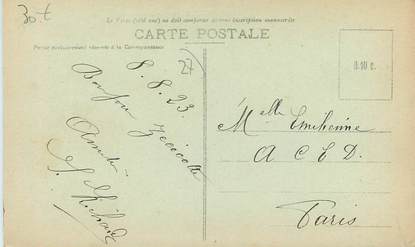 30t
Le Verso (côté vue) ne doit comporter aucune inscription manuscrite
CARTE POSTALE
Partie exclusivement réservée à la Correspondance
27
0.10 c.
8.8.23.
Bonjour
Amitié
S. Richard
Melle Emilienne
A C E D.
Paris